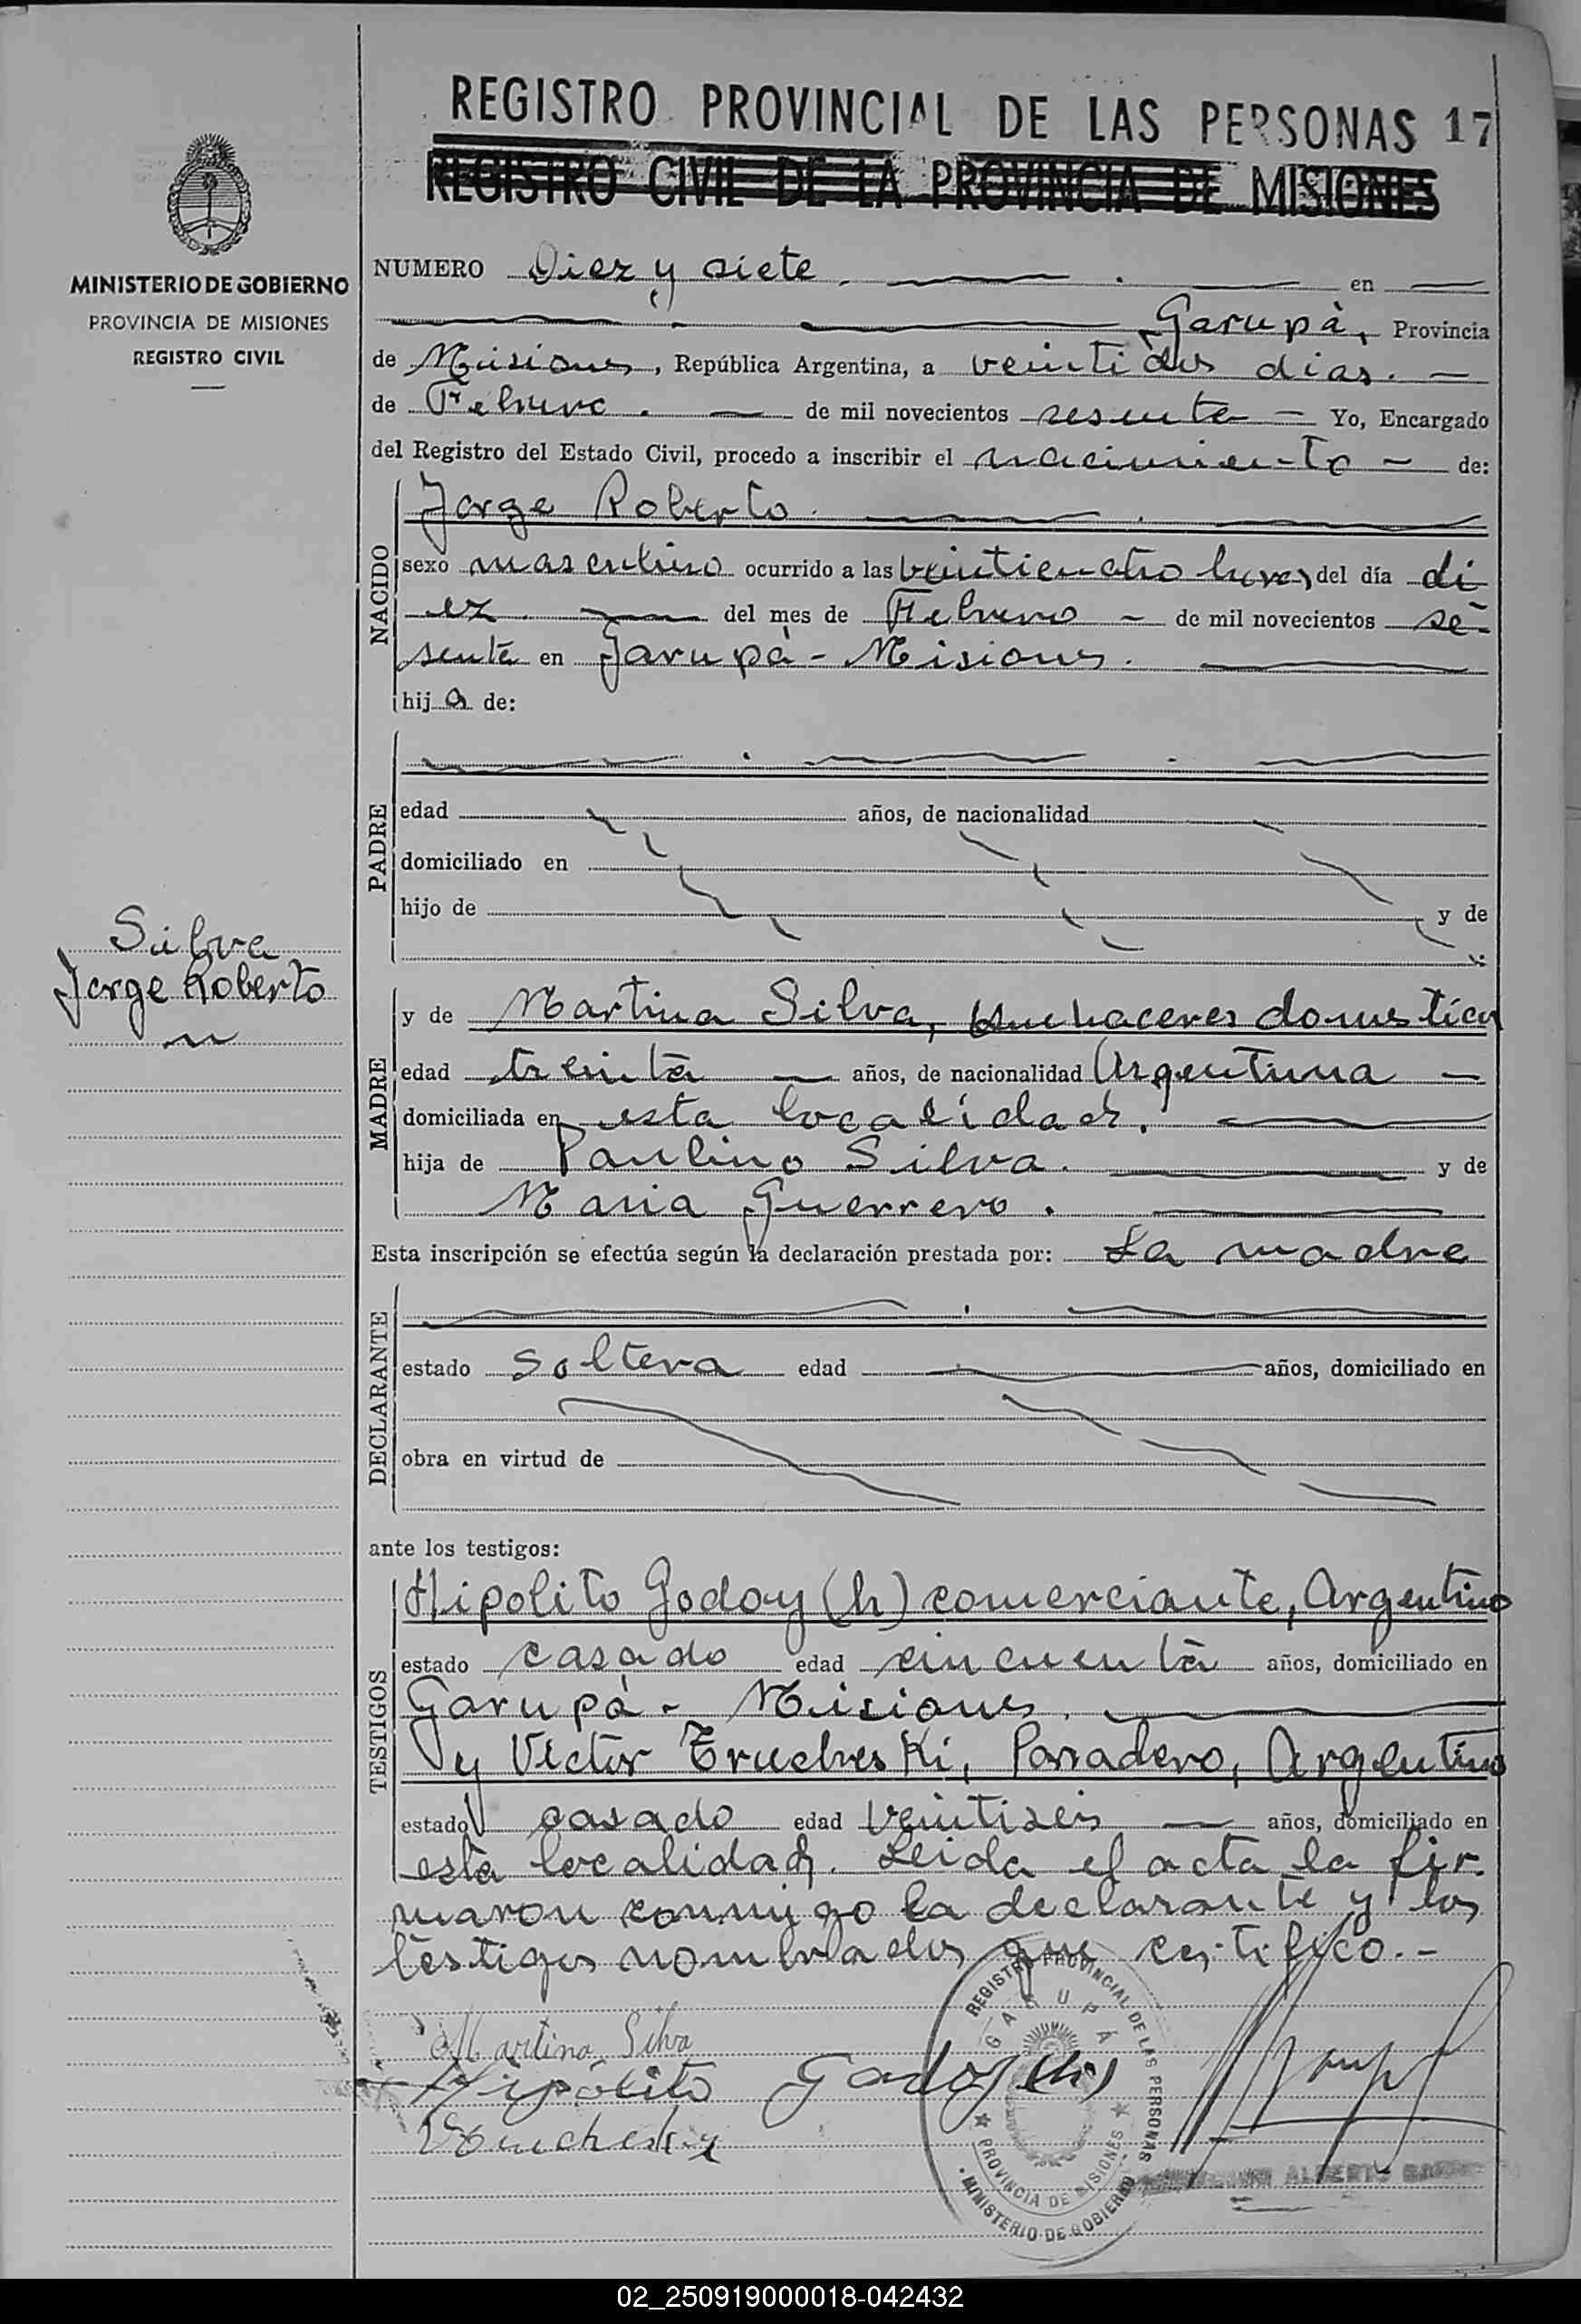 REGISTRO PROVINCIAL DE LAS PERSONAS 17
REGISTRO CIVIL DE LA PROVINCIA DE MISIONES
MINISTERIO DE GOBIERNO
PROVINCIA DE MISIONES
REGISTRO CIVIL
NUMERO Diez y siete. en
Garupà, Provincia
de Misiones, República Argentina, a veintidos dias.
de Febrero. de mil novecientos sesenta Yo, Encargado
del Registro del Estado Civil, procedo a inscribir el nacimiento de:
NACIDO
Jorge Roberto.
sexo masculino ocurrido a las veinticuatro horas del día di
ez. del mes de Febrero de mil novecientos se-
senta en Garupà - Misiones.
hij o de:
PADRE
edad años, de nacionalidad
domiciliado en
hijo de y de
Silva
Jorge Roberto
MADRE
y de Martina Silva, quehaceres domestico
edad treinta años, de nacionalidad Argentina
domiciliada en esta localidad.
hija de Paulino Silva. y de
Maria Guerrero.
Esta inscripción se efectúa según la declaración prestada por: La madre
DECLARANTE
estado soltera edad años, domiciliado en
obra en virtud de
ante los testigos:
TESTIGOS
Hipolito Godoy (h) comerciante, Argentino
estado casado edad cincuenta años, domiciliado en
Garupà - Misiones.
y Victor Panadero, Argentino
estado casado edad veintiseis años, domiciliado en
esta localidad. Leida el acta la fir-
maron conmigo la declarante y los
testigos nombrados que certifico.-
Martina Silva
Hipólito Godoy (h)
REGISTRO PROVINCIAL DE LAS PERSONAS
GARUPÁ
PROVINCIA DE MISIONES
MINISTERIO DE GOBIERNO
ALBERTO
02_250919000018-042432